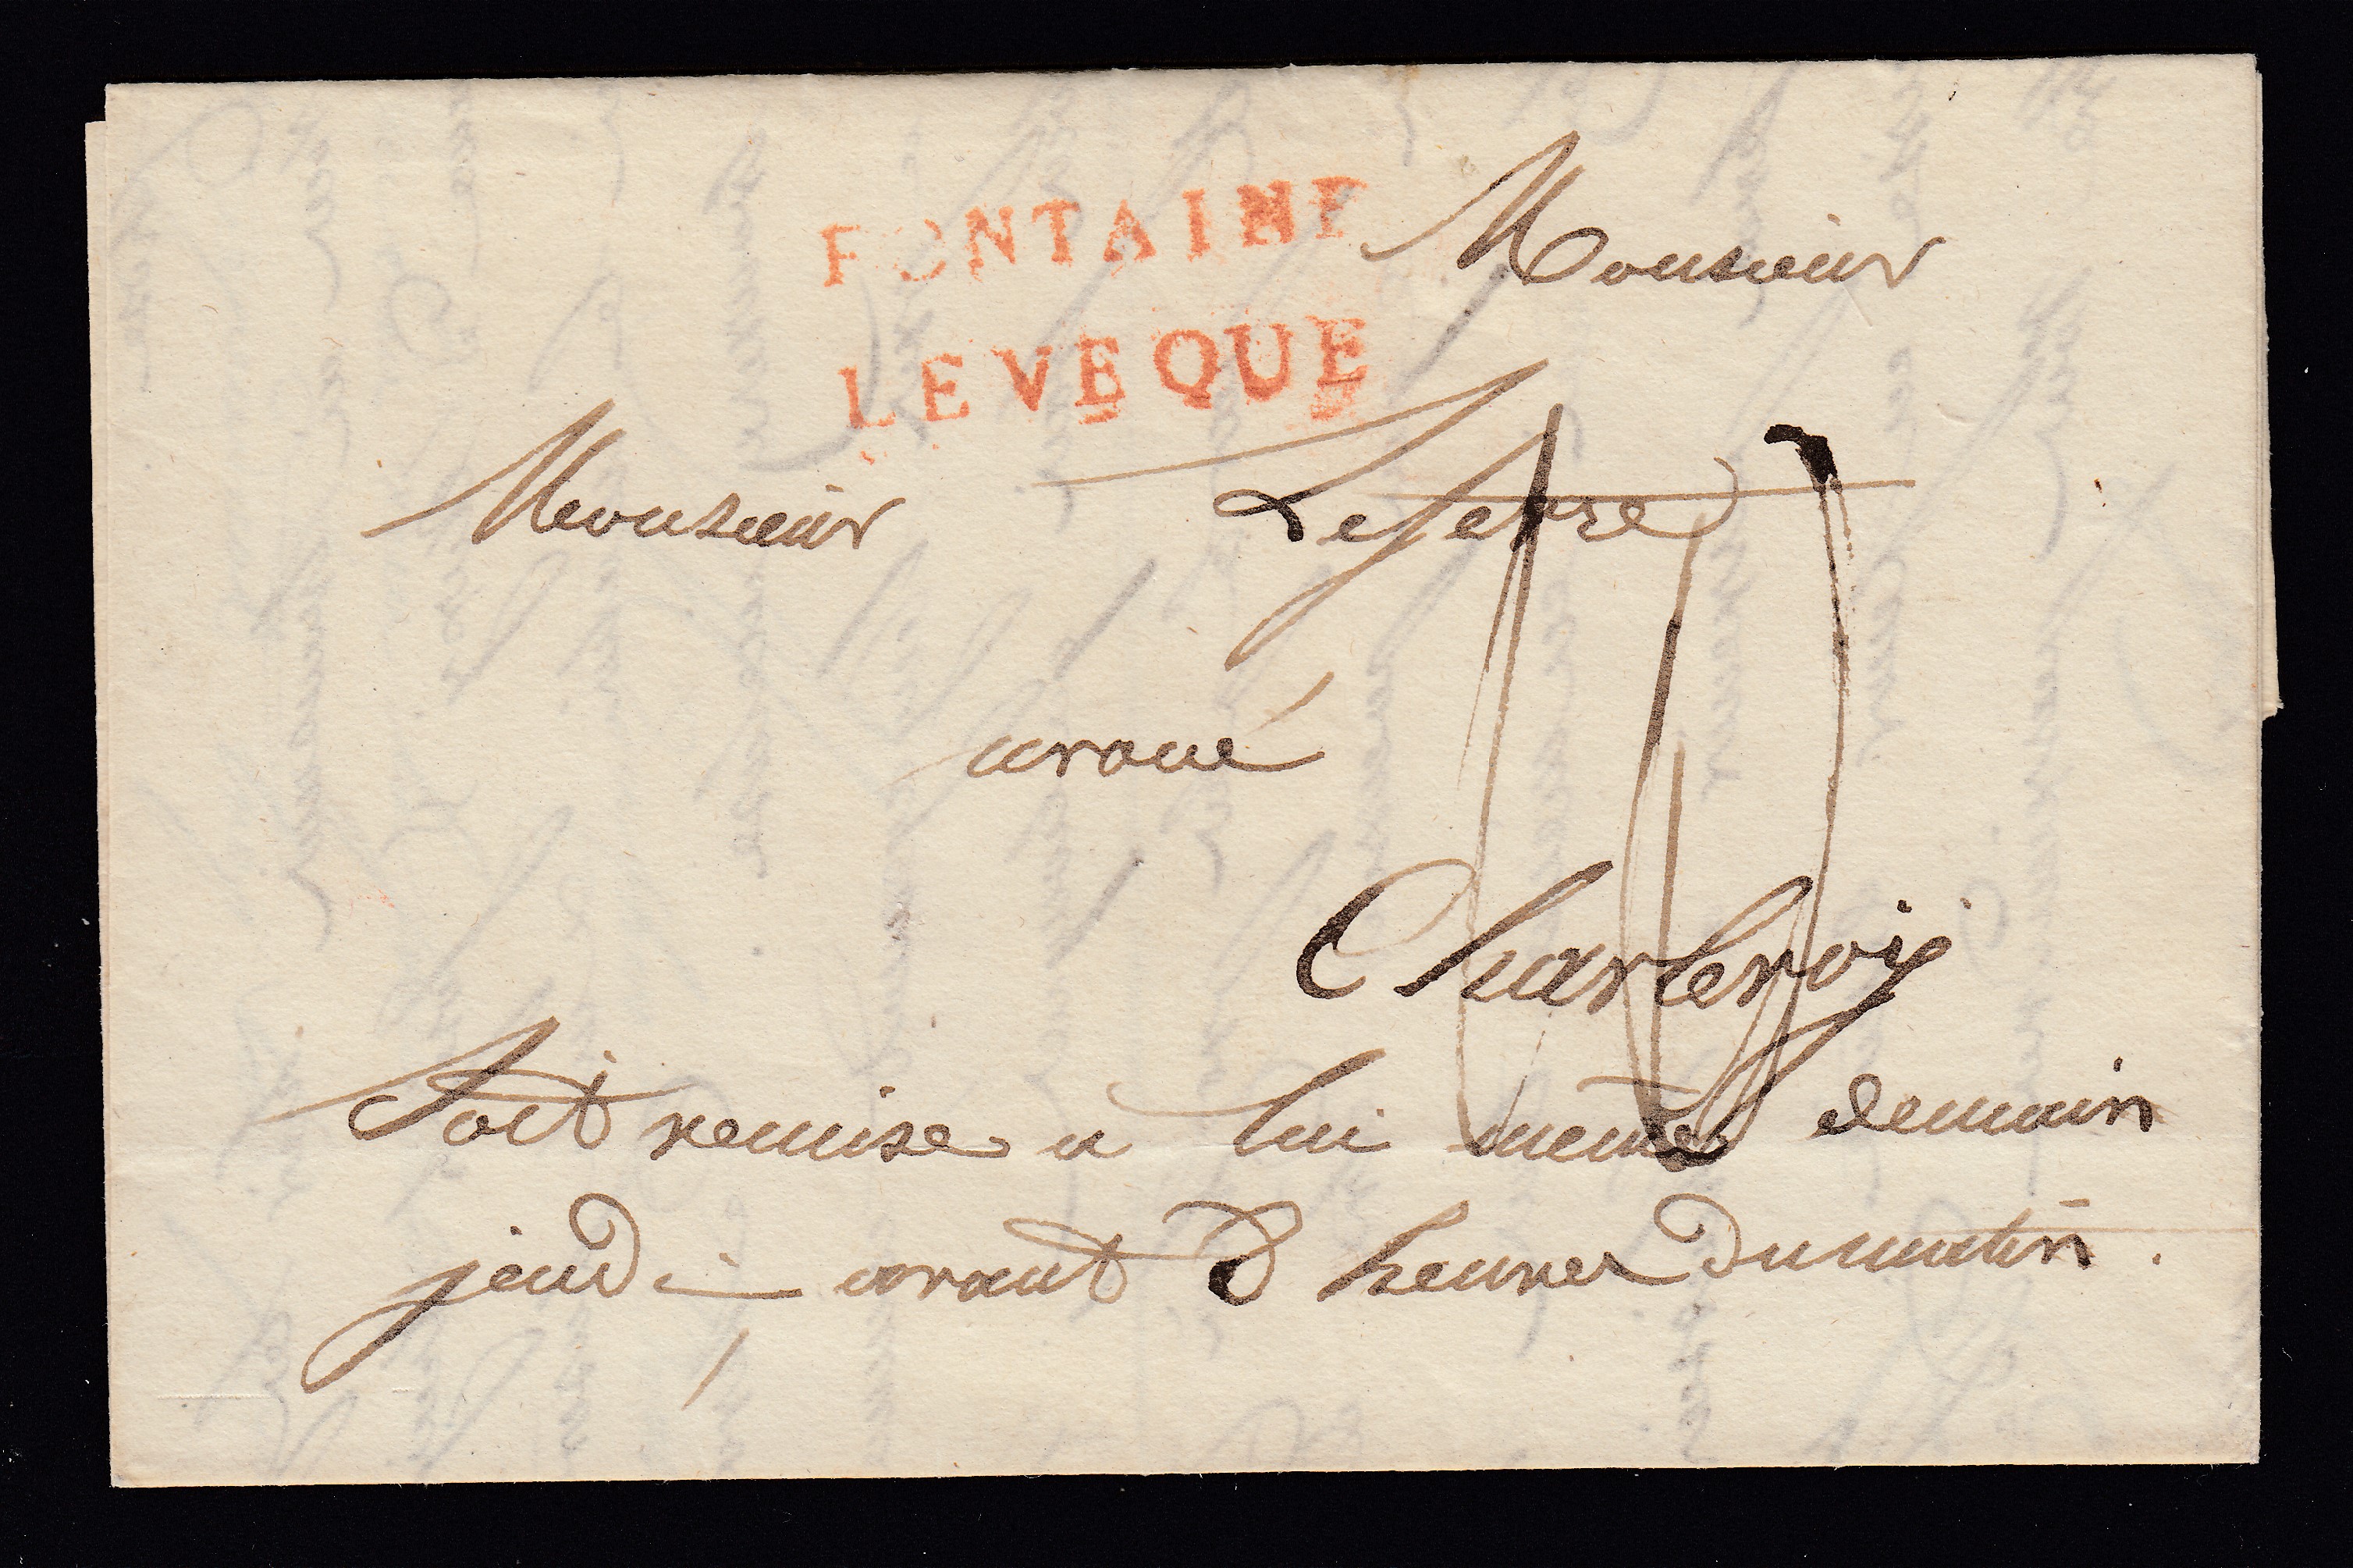 FONTAINE
LEVEQUE
Monsieur
Monsieur Lefevre
avoué
Charleroij
Soit remise a lui meme demain
jeudi avant 8 heures du matin.